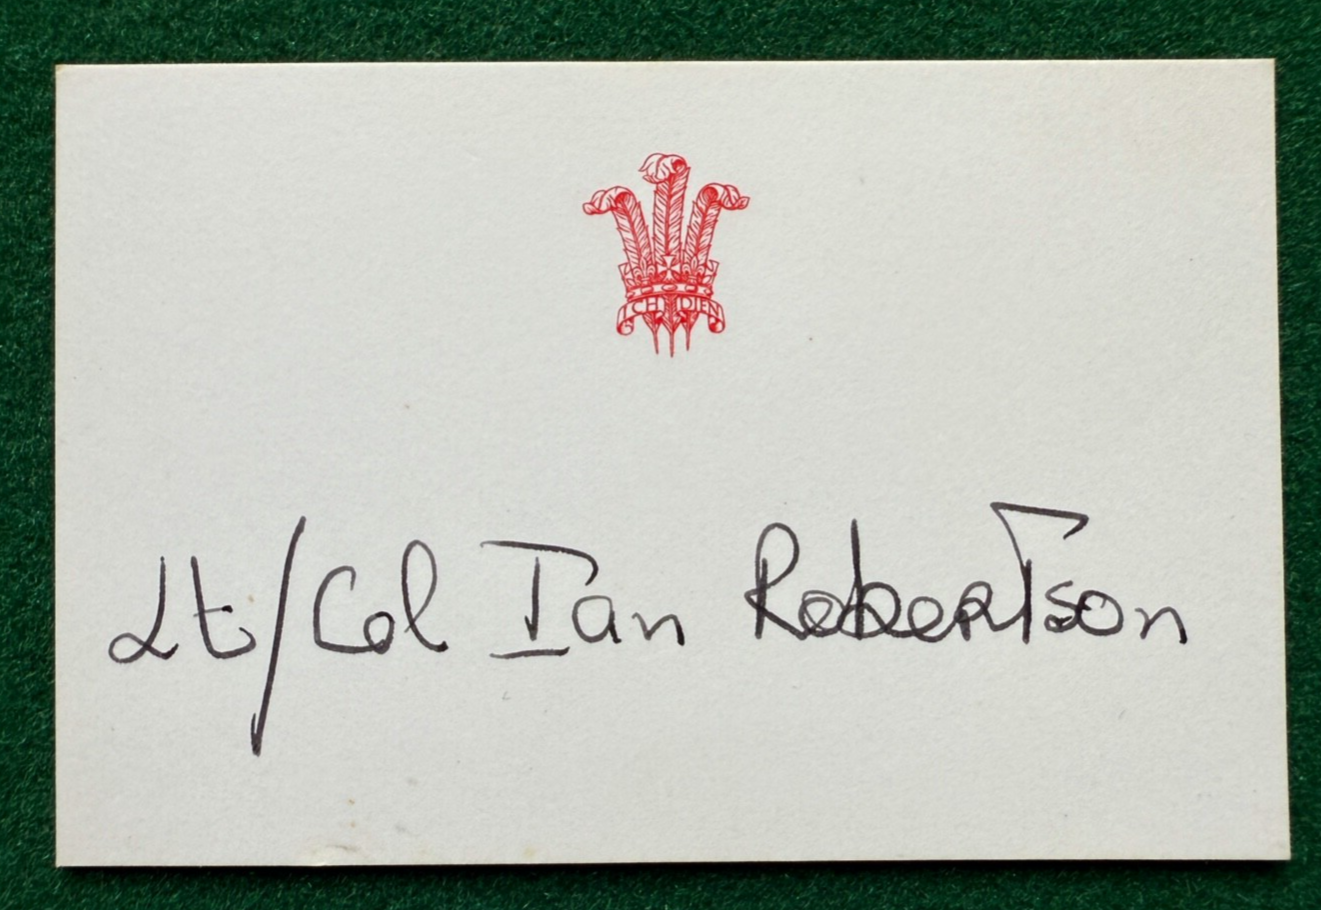 ICH DIEN
Lt/Col Ian Robertson